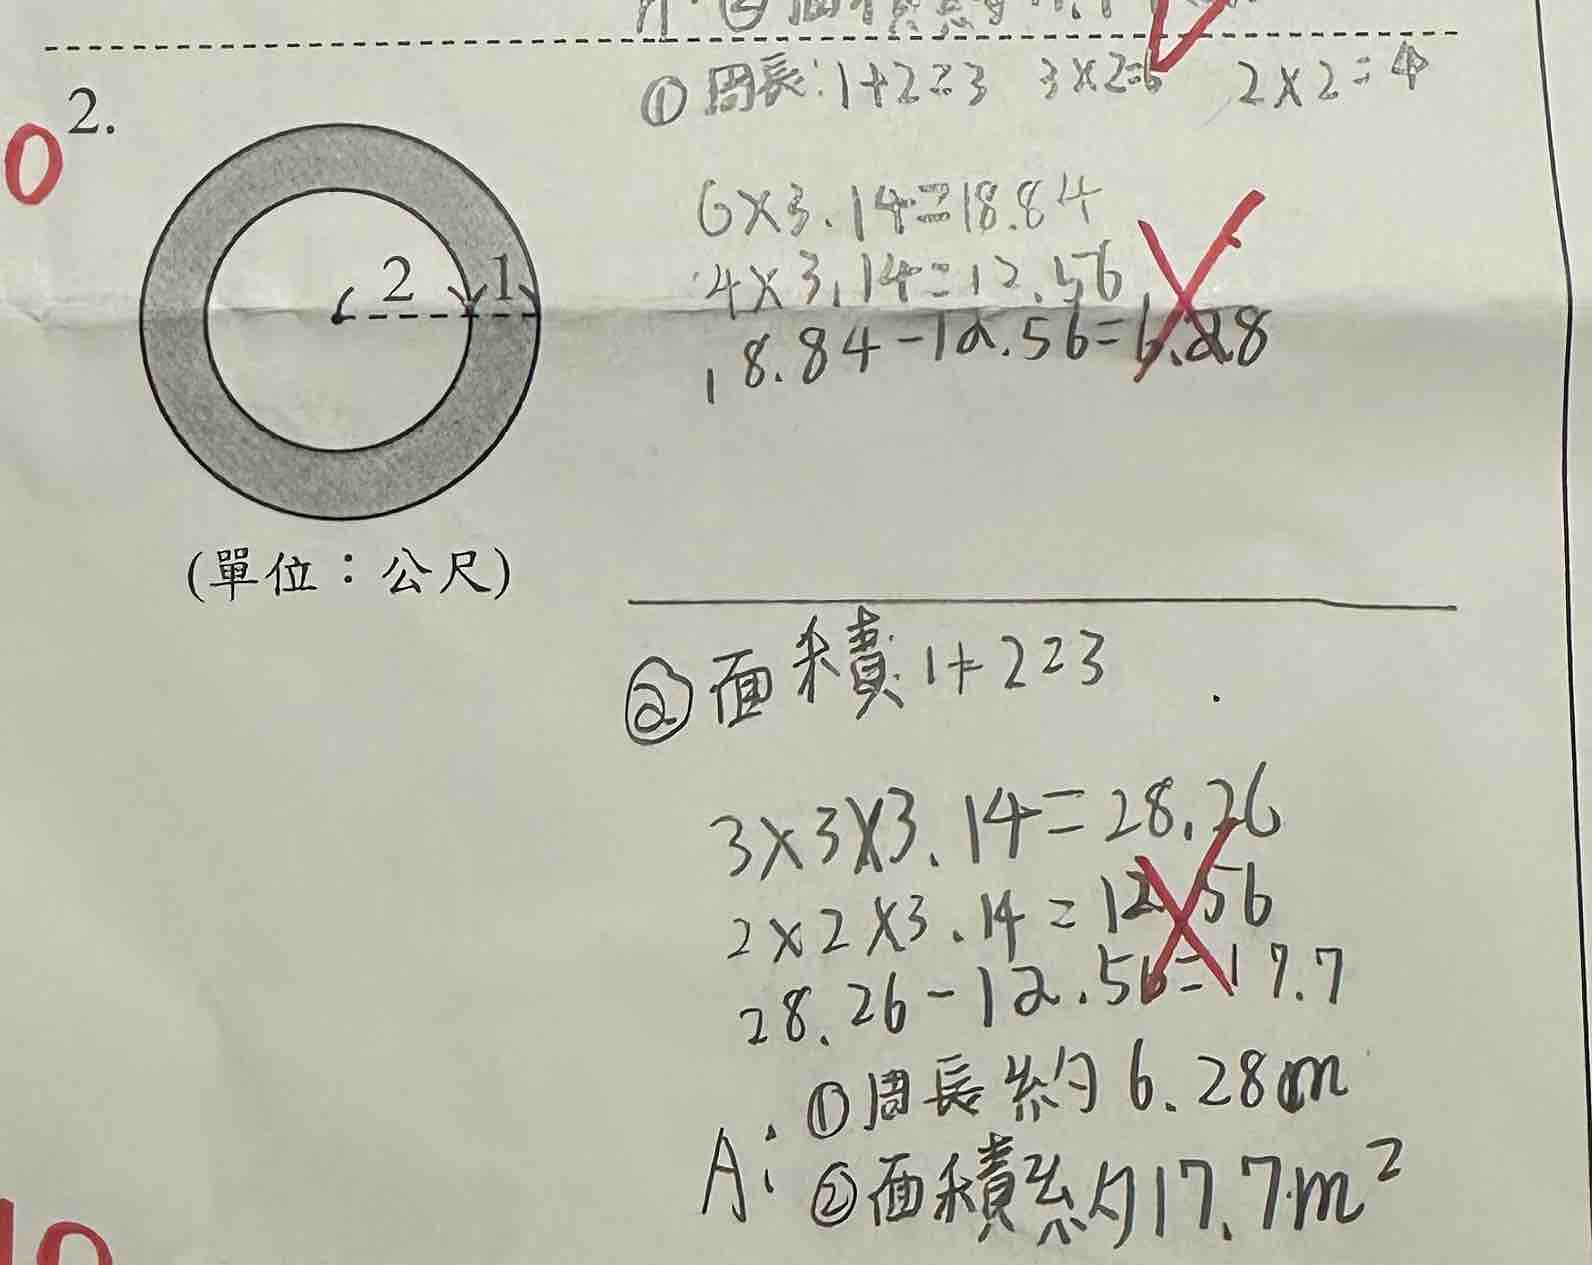 2.
0
① 周長:1+2=3 3×2=6 2×2=4
6×3.14=18.84
4×3.14=12.56
18.84-12.56=6.28
2 1
(單位：公尺)
② 面積:1+2=3
3×3×3.14=28.26
2×2×3.14=12.56
28.26-12.56=17.7
A: ①周長約6.28m
②面積約17.7m²
10